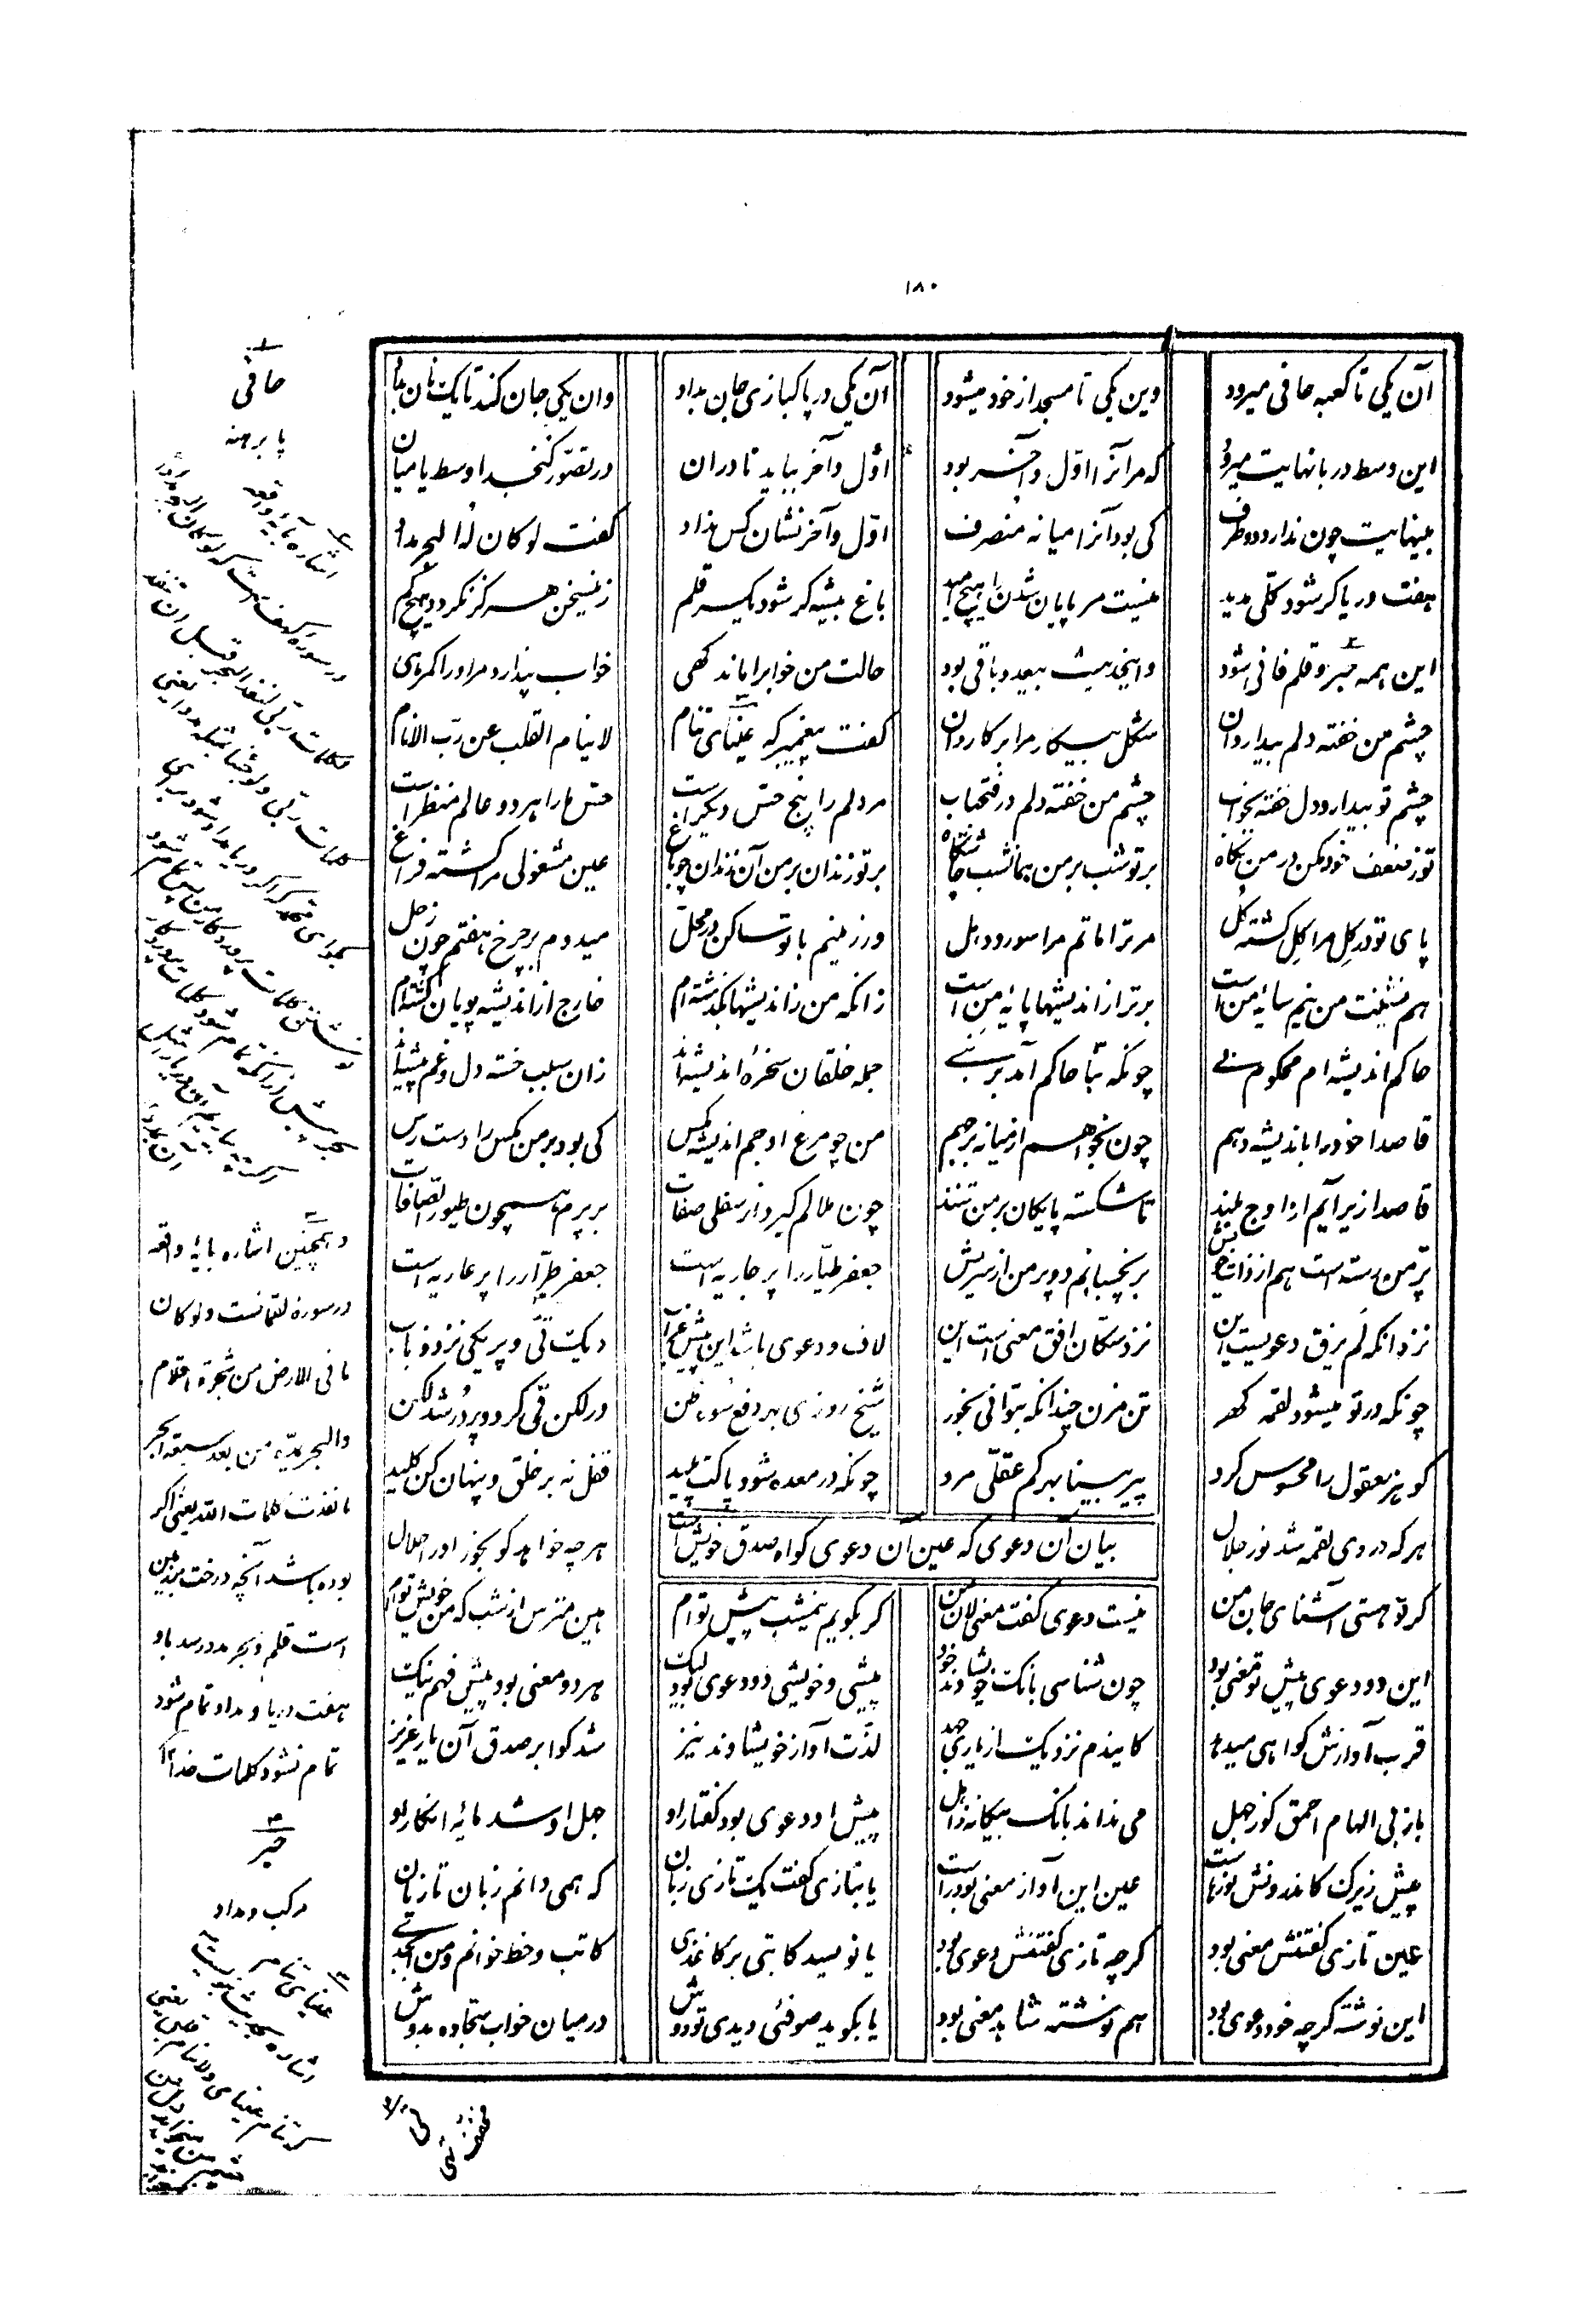 ۱۸۰
آن یکی تا کعبه حافی میرود وین یکی تا مسجد از خود میشود آن یکی در پاکبازی جان بداد وان یکی جان کند تا یک نان بداد
این وسط در بانهایت میرود که مر آنرا اوّل و آخر بود اوّل و آخر بباید تا در ان در تصوّر گنجد اوسط یا میان
بینهایت چون ندارد دو طرف کی بود آنرا میانه منصرف اوّل و آخر نشان کس نداد گفت لو کان له البحر مداد
هفت دریا گر شود کلّی مدید نیست مر پایان شدن را هیچ امید باغ بیشه گر شود یکسر قلم زین سخن هرگز نگردد هیچ کم
این همه حبر و قلم فانی شود واین حدیث بیعدد باقی بود حالت من خواب را ماند گهی خواب پندارد مر او را گمرهی
چشم من خفته دلم بیدار دان شکل بیکار مرا بر کار دان گفت پیغمبر که عینای تنام لا ینام القلب عن ربّ الانام
چشم تو بیدار و دل خفته بخواب چشم من خفته دلم در فتح باب مر دلم را پنج حسّ دیگر است حسّ را هر دو عالم منظر است
تو ز ضعف خود مکن در من نگاه بر تو شب بر من همانشب چاشتگاه بر تو زندان بر من آن زندان چو باغ عین مشغولی مرا گشته فراغ
پای تو در گِل مرا گِل گشته گُل مر ترا ماتم مرا سور و دهل در زمینم با تو ساکن در محلّ میدوم بر چرخ هفتم چون زحل
همنشینت من نیم سایهٔ من است برتر از اندیشها پایهٔ من است زانکه من ز اندیشها بگذشته‌ام خارج از اندیشه پویان گشته‌ام
حاکم اندیشه‌ام محکوم نی چونکه بنّا حاکم آمد بر بنی جمله خلقان سخرهٔ اندیشه‌اند زان سبب خسته دل و غم پیشه‌اند
قاصدا خود را باندیشه دهم چون بخواهم از میانه بر جهم من چو مرغ اوجم اندیشه مگس کی بود بر من مگس را دست رس
قاصدا زیر آیم از اوج بلند تا شکسته پایگان بر من تنند چون ملالم گیرد از سفلی صفات بر پرم همچون طیور الصّافات
پرّ من رسته است هم از ذات خویش بر نچسبانم دو پر من از سریش جعفر طیّار را پر جاریه است جعفر طرّار را پر عاریه است
نزد آنکه لم یذق دعویست این نزد سکّان افق معنی است این لاف و دعوی باشد این پیش غراب دیگ تی و پر یکی نزد ذباب
چونکه در تو میشود لقمه گهر تن مزن چندانکه بتوانی بخور شیخ روزی بهر دفع سوء ظن در لگن قی کرد و پر دُر شد لگن
گوهر معقول را محسوس کرد پیر بینا بهر کم عقلی مرد چونکه در معده شود پاکت پلید قفل نه بر حلق و پنهان کن کلید
هر که در وی لقمه شد نور جلال هر چه خواهد گو بخور او را حلال
بیان آن دعوی که عین آن دعوی گواه صدق خویش است
گر تو هستی آشنای جان من نیست دعوی گفت معنی لان من گر بگویم نیمشب پیش توام هین مترس از شب که من خویش توام
این دو دعوی پیش تو معنی بود چون شناسی بانک خویشاوند خود پیشی و خویشی دو دعوی بود لیک هر دو معنی بود پیش فهم نیک
قرب آوازش گواهی میدهد کاین دم نزدیک از یاری جهد لذّت آواز خویشاوند نیز شد گوا بر صدق آن یار عزیز
باز بی الهام احمق کو ز جهل می نداند بانک بیگانه ز اهل پیش او دعوی بود گفتار او جهل او شد مایهٔ انکار او
پیش زیرک کاندرونش نورهاست عین این آواز معنی بود راست یا بتازی گفت یک تازی زبان که همی دانم زبان تازیان
عین تازی گفتنش معنی بود گرچه تازی گفتنش دعوی بود یا نویسد کاتبی بر کاغذی کاتب و خط خوانم و من ابجدی
این نوشته گرچه خود دعوی بود هم نوشته شاهد معنی بود یا بگوید صوفئی دیدی تو دوش در میان خواب سجّاده بدوش
۱
حافی
پا برهنه
۲
اشاره بآیهٔ واقعه
در سورهٔ کهف است که لو کان البحر مداداً
لکلمات ربّی لنفد البحر قبل ان تنفد
کلمات ربّی ولو جئنا بمثله مددا یعنی
۲
و همچنین اشاره بآیهٔ واقعه
در سورهٔ لقمانست ولو کان
ما فی الارض من شجرة اقلام
والبحر یمدّه من بعد سبعة ابحر
ما نفدت کلمات الله یعنی اگر
بوده باشد آنچه در زمین درخت
است قلم و بحر مدد رسد باو
هفت دریا و مداد تمام شود
تمام نشود کلمات خدا
۳
حبر
مرکب و مداد
۴
عینای تنام
اشاره بحدیث نبویست